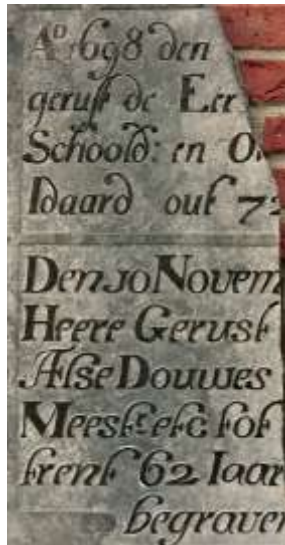 Aº 1698 den
gerust de Eer
Schoold: en O
Idaard out 72
Den 10 Novem
Heere Gerust
Ælse Douwes
Meestr etc tot
trent 62 Iaar
begraven